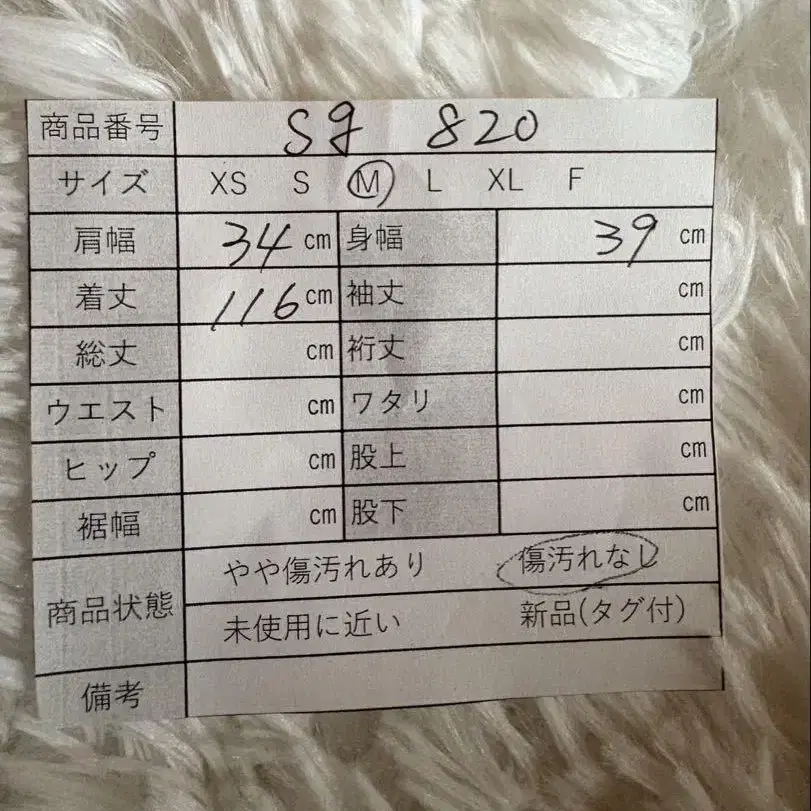 商品番号 sg 820
サイズ XS S M L XL F
肩幅 34 cm 身幅 39 cm
着丈 116 cm 袖丈 cm
総丈 cm 裄丈 cm
ウエスト cm ワタリ cm
ヒップ cm 股上 cm
裾幅 cm 股下 cm
商品状態 やや傷汚れあり 傷汚れなし
未使用に近い 新品(タグ付)
備考